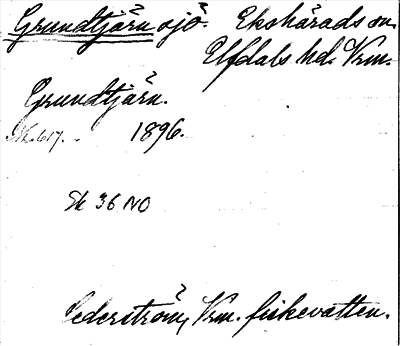 Grundtjärn sjö. Ekshärads sn.
Elfdals hd. Vrm.
Grundtjärn.
Sk. 617. 1896.
Sk 36 NO
Cederström, Vrm. fiskevatten.